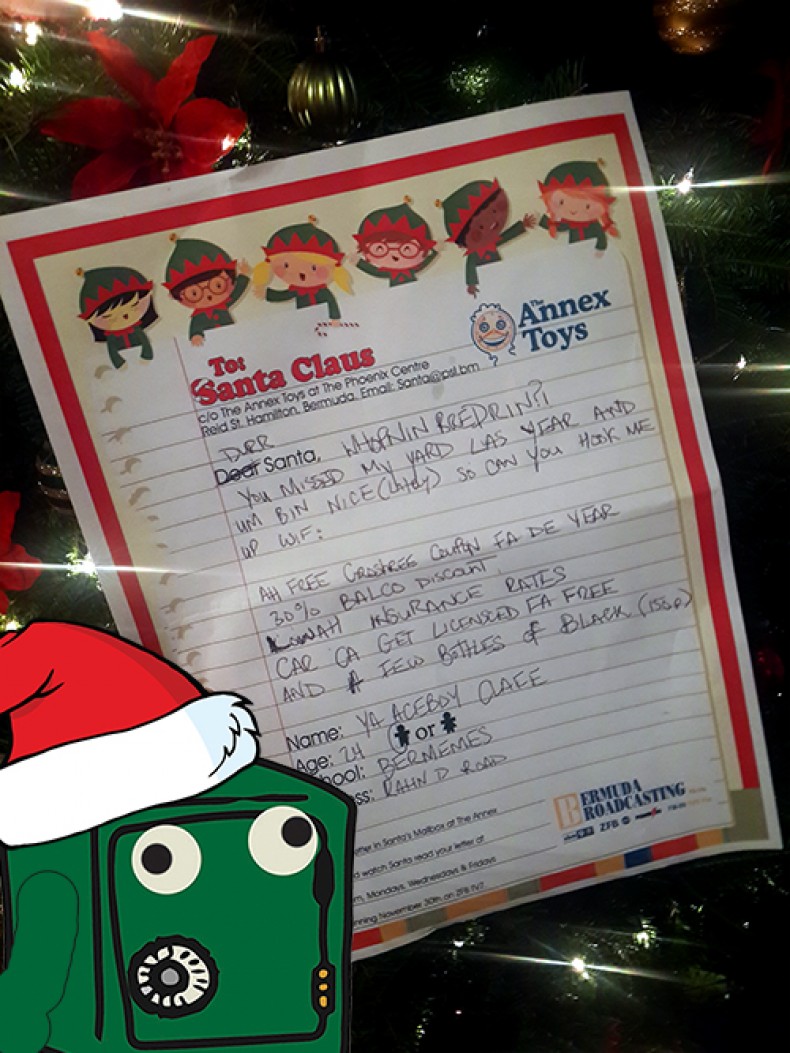 The Annex
Toys
To:
Santa Claus
c/o The Annex Toys at The Phoenix Centre
Reid St. Hamilton, Bermuda. Email: Santa@psl.bm
DURR
Dear Santa, WHOPNIN BREDRIN?!
YOU MISSED MY YARD LAS YEAR AND
UM BIN NICE (lately) SO CAN YOU HOOK ME
UP WIF:
AH FREE COUPON FA DE YEAR
30% BALCO DISCOUNT
LOWAH INSURANCE RATES
CAR CA GET LICENSED FA FREE
AND A FEW BOTTLES of BLACK (151 )
Name: YA ACEBOY
Age: 24 or
hool: BERMEMES
ss: RAHN D ROAD
BERMUDA
BROADCASTING
ZFB
etter in Santa's Mailbox at The Annex
d watch Santa read your letter at
m, Mondays, Wednesdays & Fridays
nning November 30th on ZFB TV7